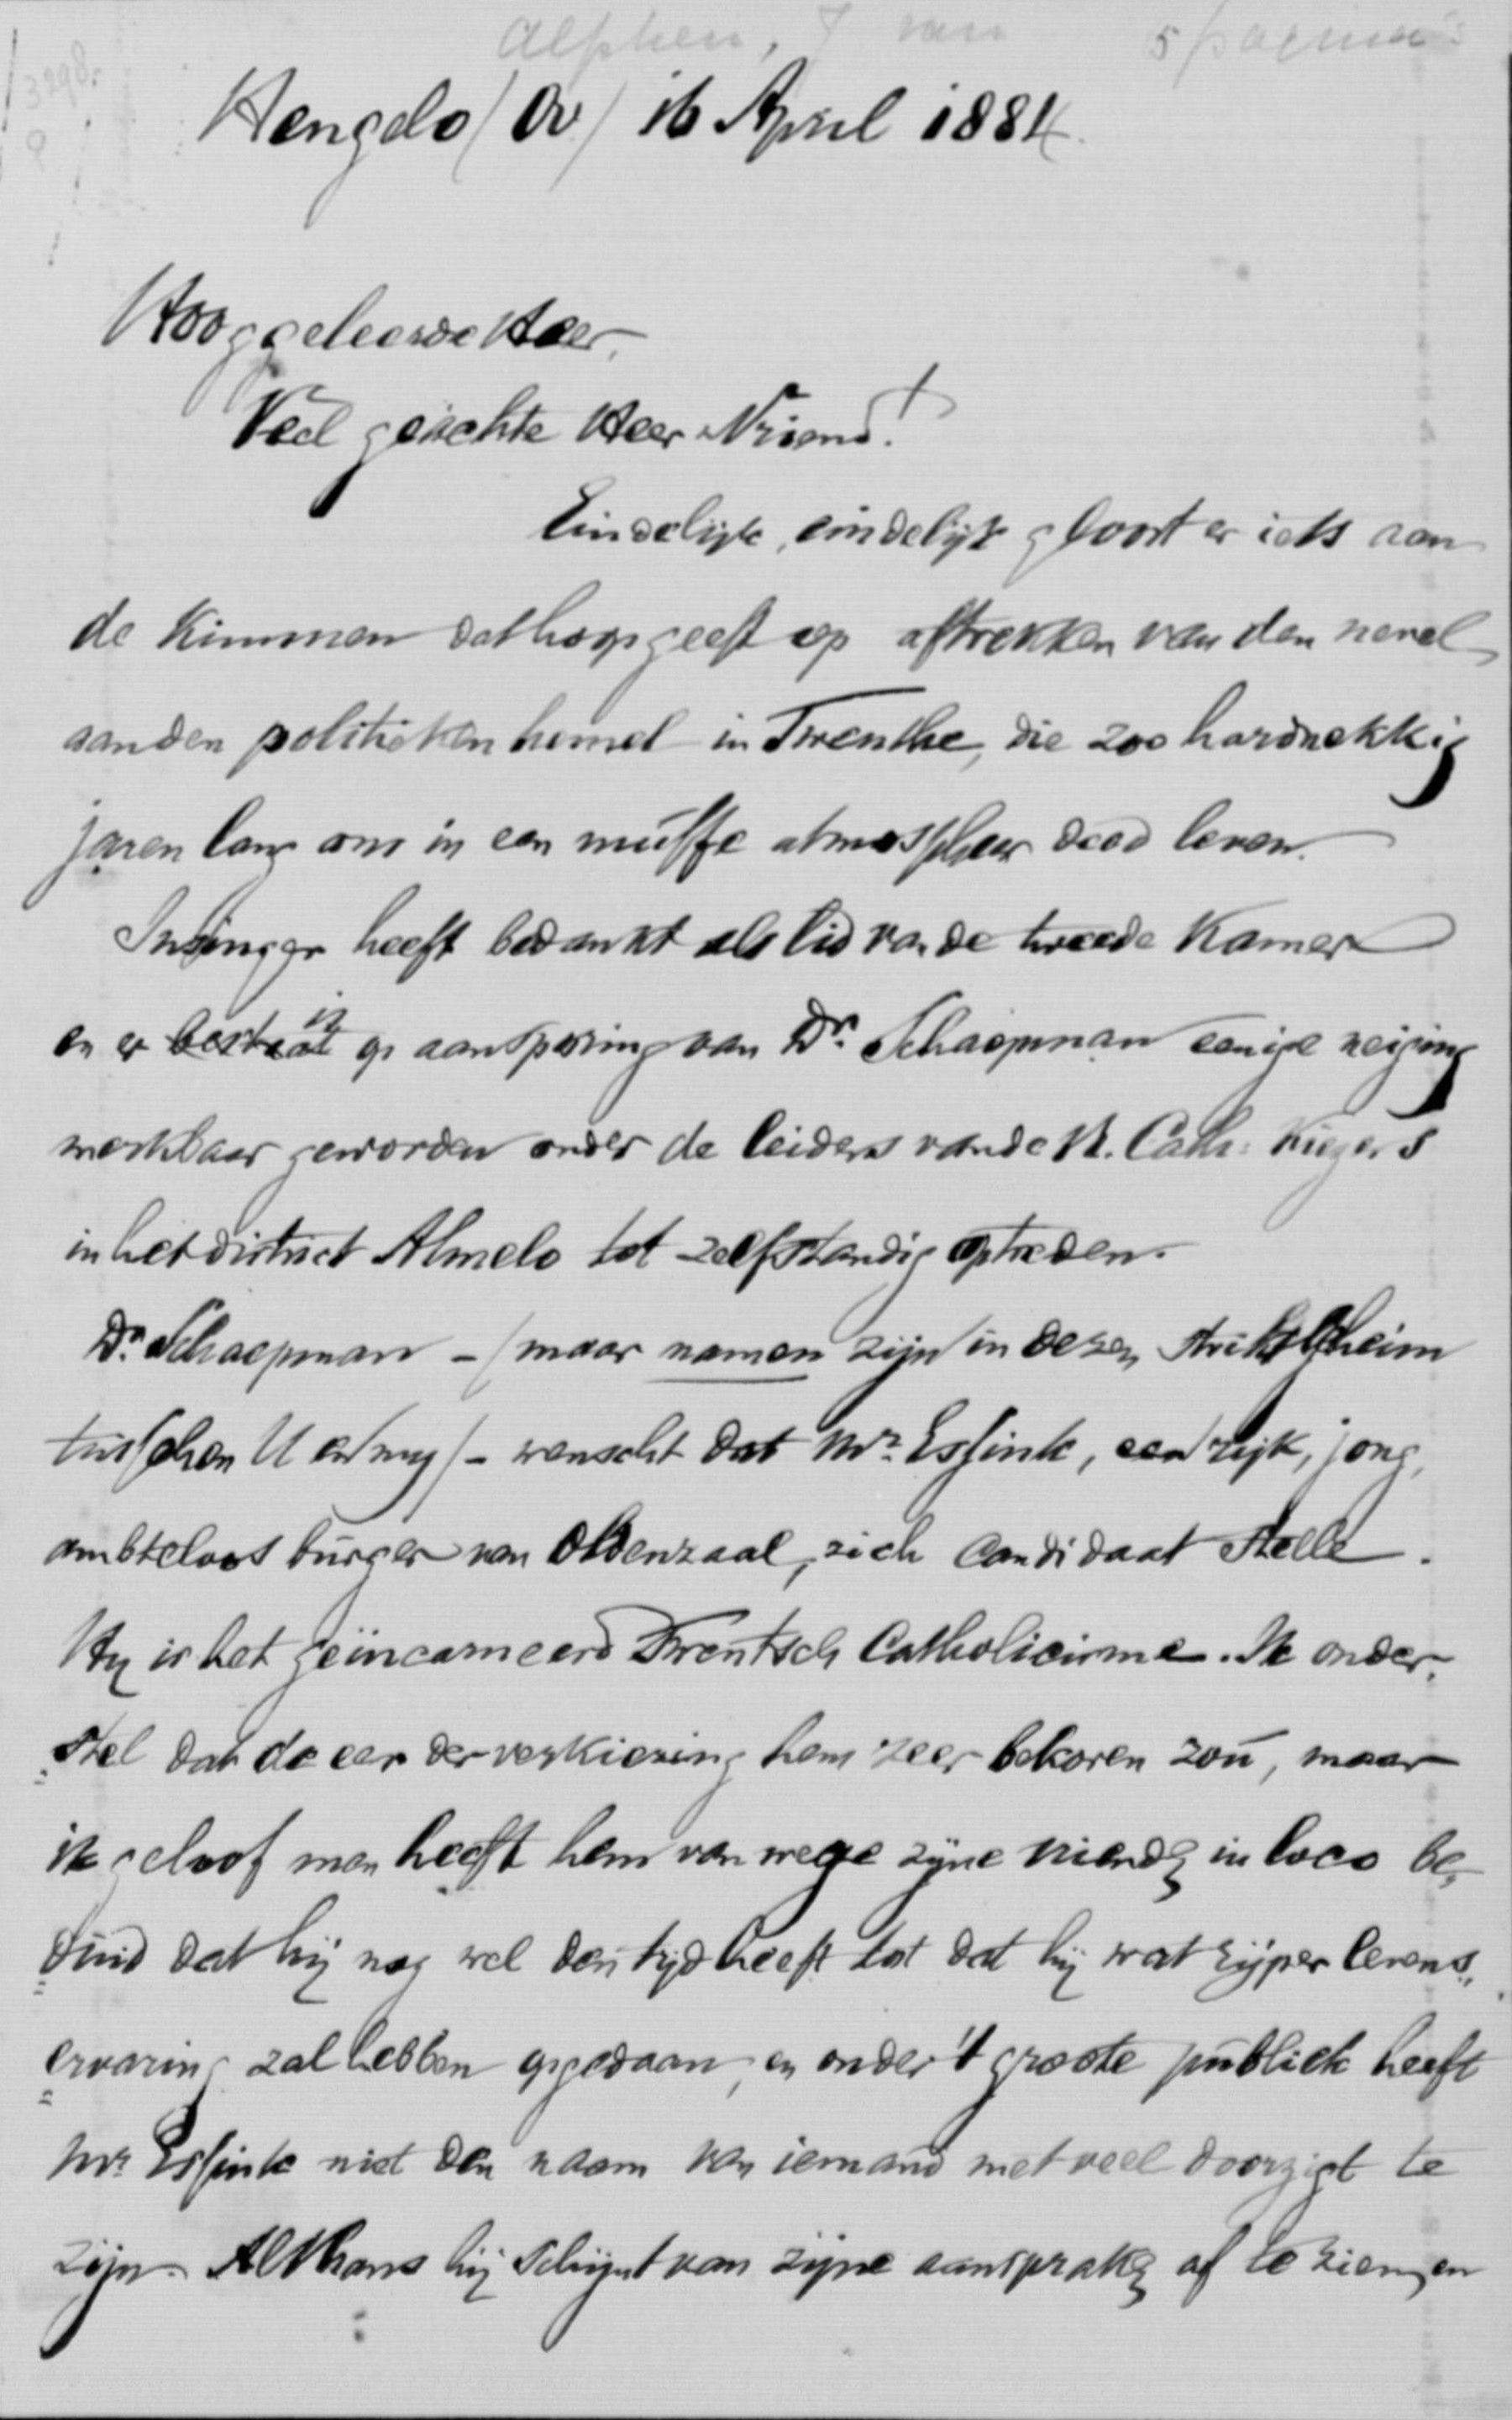 Alphen, J van
Hengelo (Ov) 16 April 1884.
Hooggeleerde Heer,
Veel geachte Heer & Vriend!
Eindelijk, eindelijk gloort er iets aan
de kimmen dat hoop geeft op aftrekken van den nevel
aan den politieken hemel in Twenthe, die zoo hardnekkig
jaren lang ons in een muffe atmospheer deed leven.
Insinger heeft bedankt als lid van de tweede Kamer
en er bestaat is op aansporing van Dr. Schaepman eenige neiging
merkbaar geworden onder de leiders van de R. Cath: kiezers
in het district Almelo tot zelfstandig optreden.
Dr. Schaepman - (maar namen zijn in dezen strikt geheim
tusschen U en my) - wenscht dat Mr. Essink, een rijk, jong,
ambteloos burger van Oldenzaal, zich candidaat stelle.
Hy is het geïncarneerd Twentsch Catholicisme. Ik onder-
„stel dat de eer der verkiezing hem zeer bekoren zou, maar
ik geloof men heeft hem van wege zijne vrienden in loco be-
„duid dat hij nog wel den tijd heeft tot dat hij wat rijper levens„
„ervaring zal hebben opgedaan, en onder 't groote publiek heeft
Mr. Essink niet den naam van iemand met veel doorzigt te
zijn. Althans hij schijnt van zijne aanspraken af te zien, en